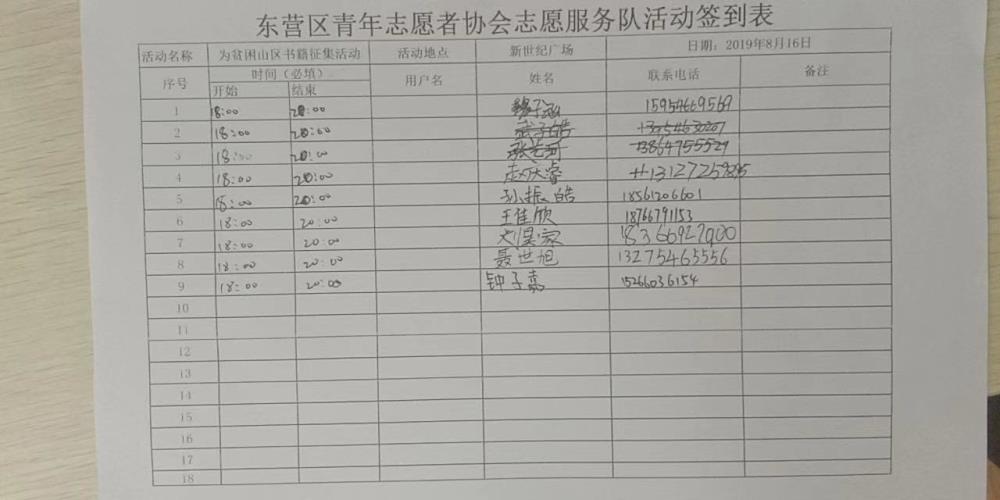 东营区青年志愿者协会志愿服务队活动签到表
活动名称 为贫困山区书籍征集活动 活动地点 新世纪广场 日期：2019年8月16日
序号 时间（必填） 用户名 姓名 联系电话 备注
开始 结束
1 18:00 20:00 15954669569
2 18:00 20:00
3 18:00 20:00 13864755529
4 18:00 20:00 赵庆睿
5 18:00 20:00 孙振皓 18561206601
6 18:00 20:00 王佳欣 18766791153
7 18:00 20:00 刘昊家 18366927900
8 18:00 20:00 聂世旭 13275465556
9 18:00 20:00 钟子嘉 15266036154
10
11
12
13
14
15
16
17
18